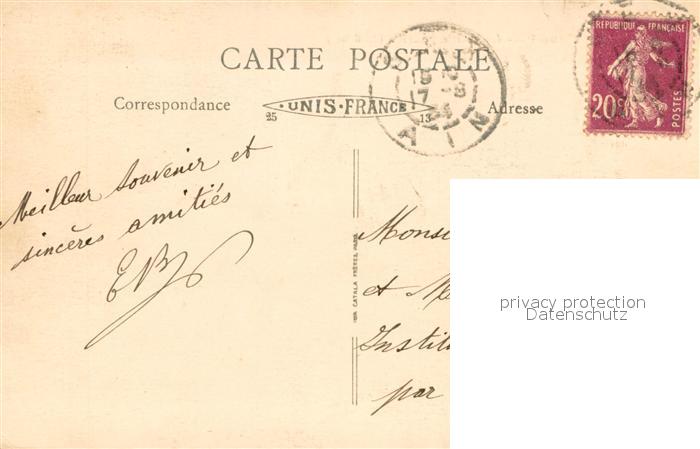 CARTE POSTALE
Correspondance
UNIS-FRANCE
25
13
Adresse
REPUBLIQUE FRANÇAISE
20c
POSTES
17 -8
AIN
Meilleur souvenir et
sincères amitiés
EB
IMP. CATALA FRÈRES, PARIS
Monsi
et M
Institu
par
privacy protection
Datenschutz